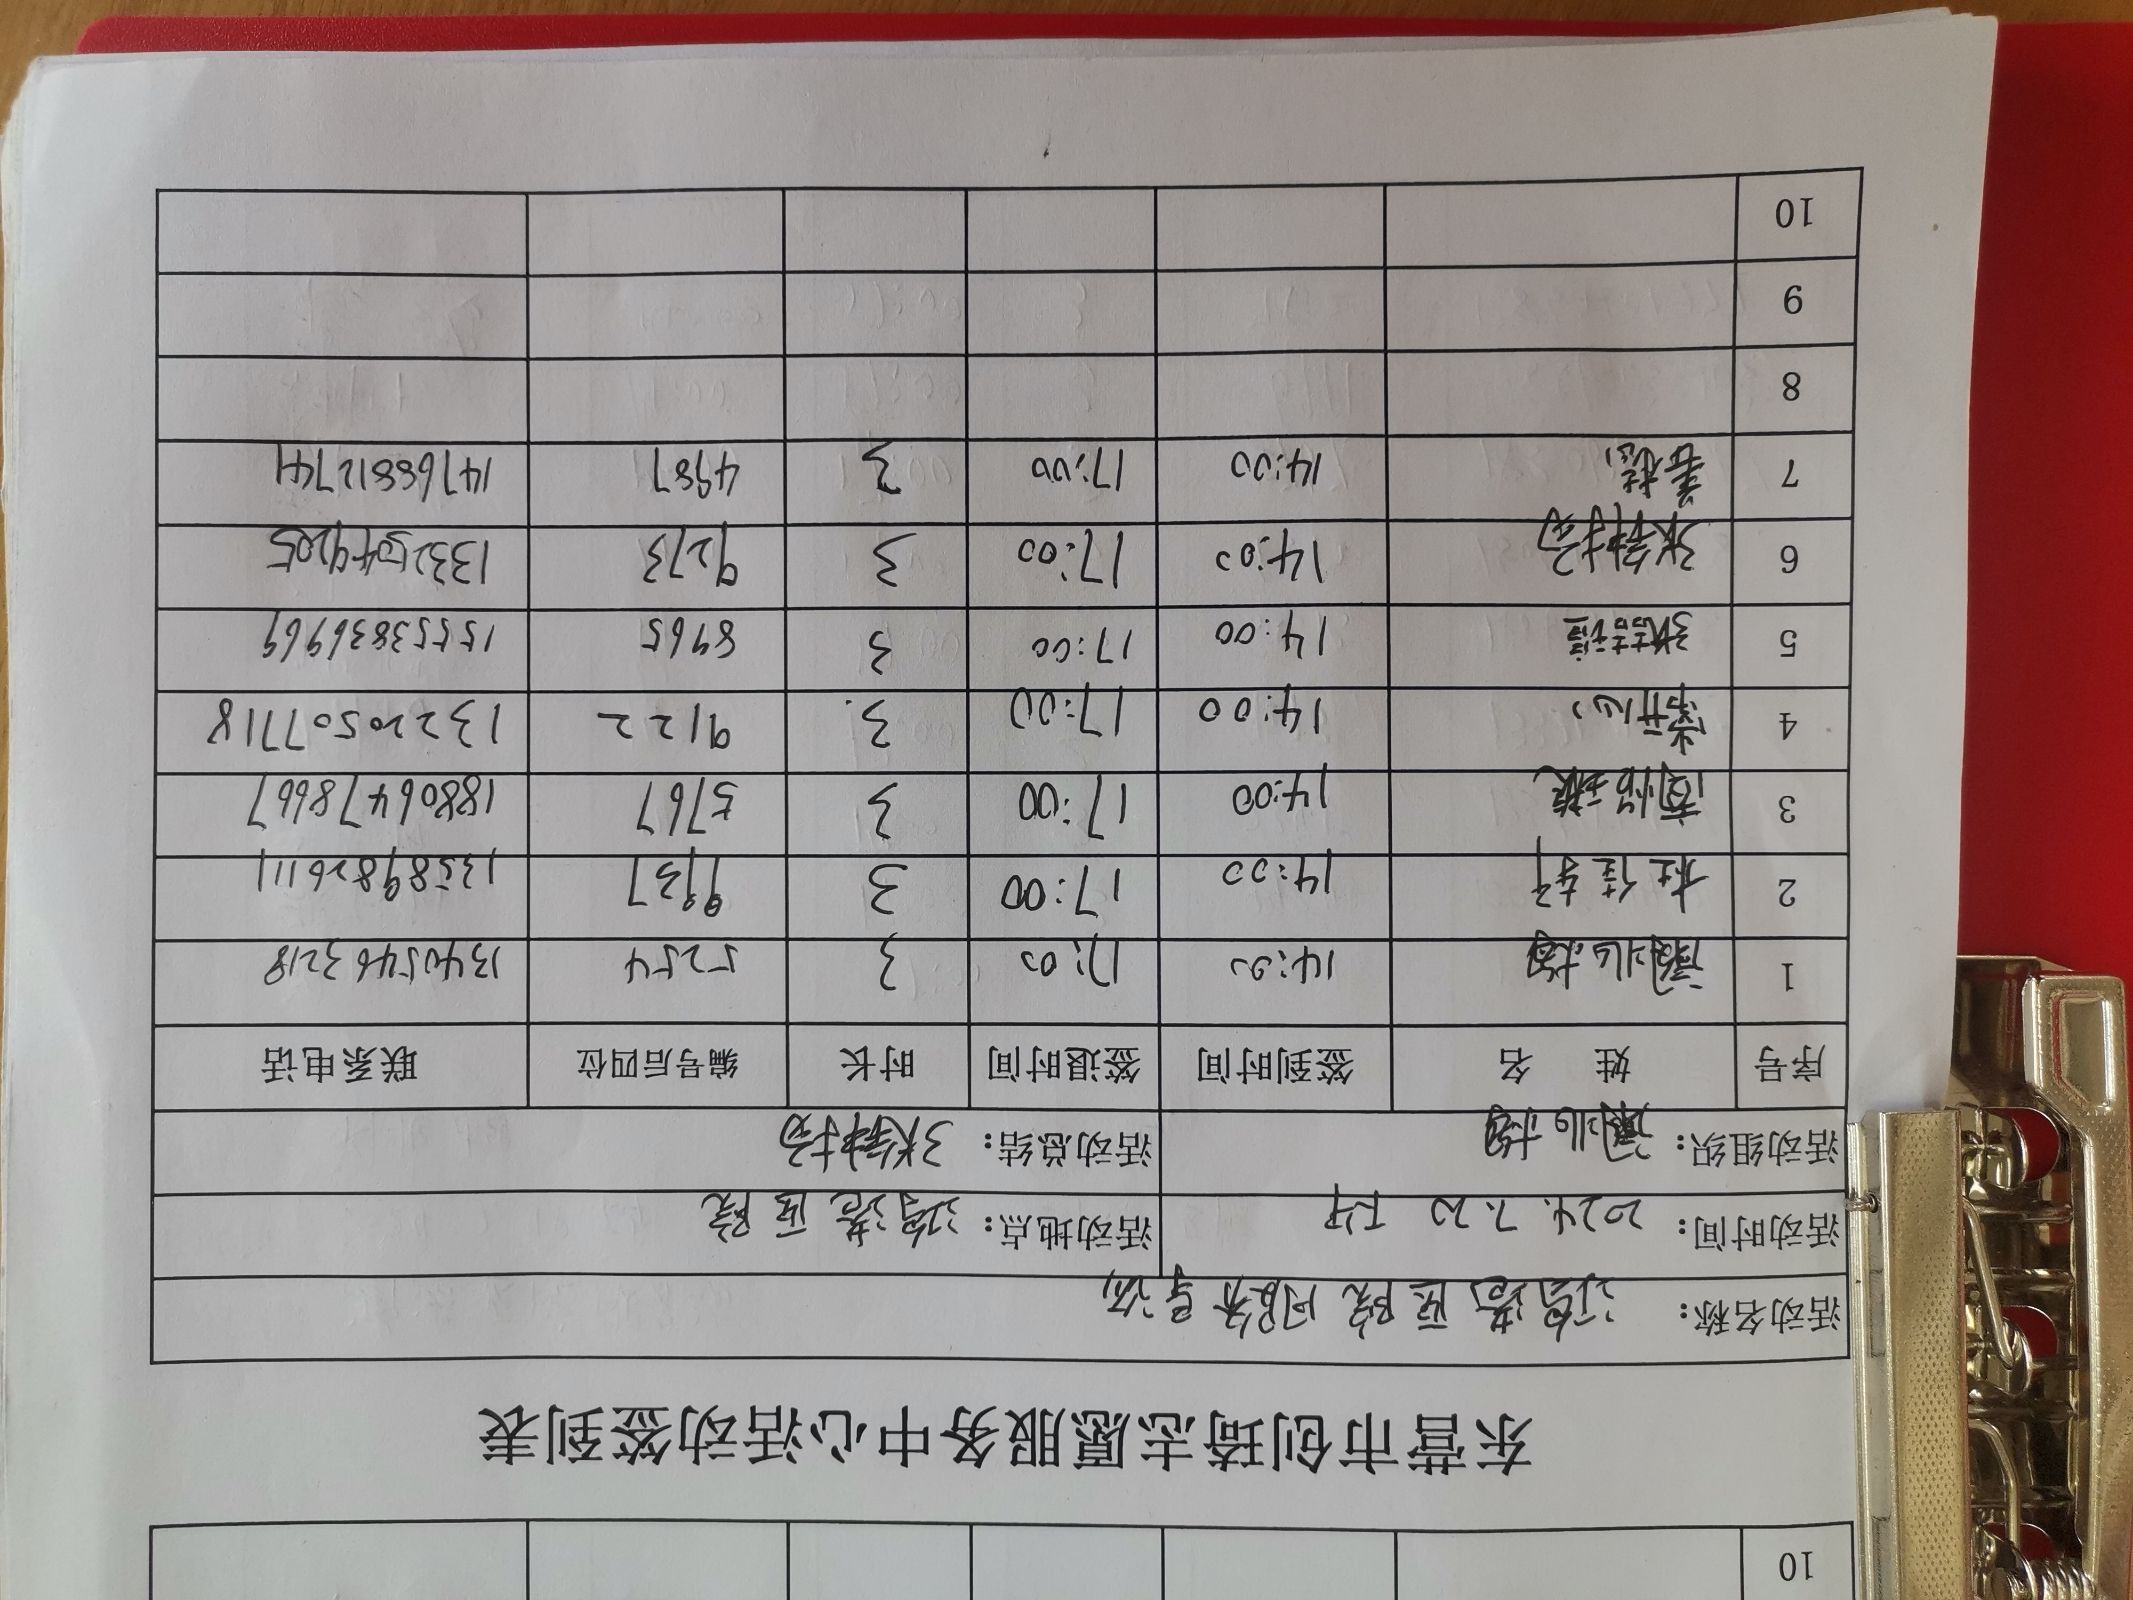 10
东营市创琦志愿服务中心活动签到表
活动名称： 鸿港医院服务导诊
活动时间： 2024.7.20 下午 活动地点： 鸿港医院
活动组织： 活动总结：
序号 姓 名 签到时间 签退时间 时长 编号后四位 联系电话
1 14:00 17:00 3 5254 13405463218
2 杜佳轩 14:00 17:00 3 9937 13589826111
3 14:00 17:00 3 5767 18806478667
4 常开心 14:00 17:00 3. 9122 13220507718
5 张喆瑄 14:00 17:00 3 8965 15553836969
6 14:00 17:00 3 9273 13325049205
7 14:00 17:00 3 4987 14768812744
8
9
10